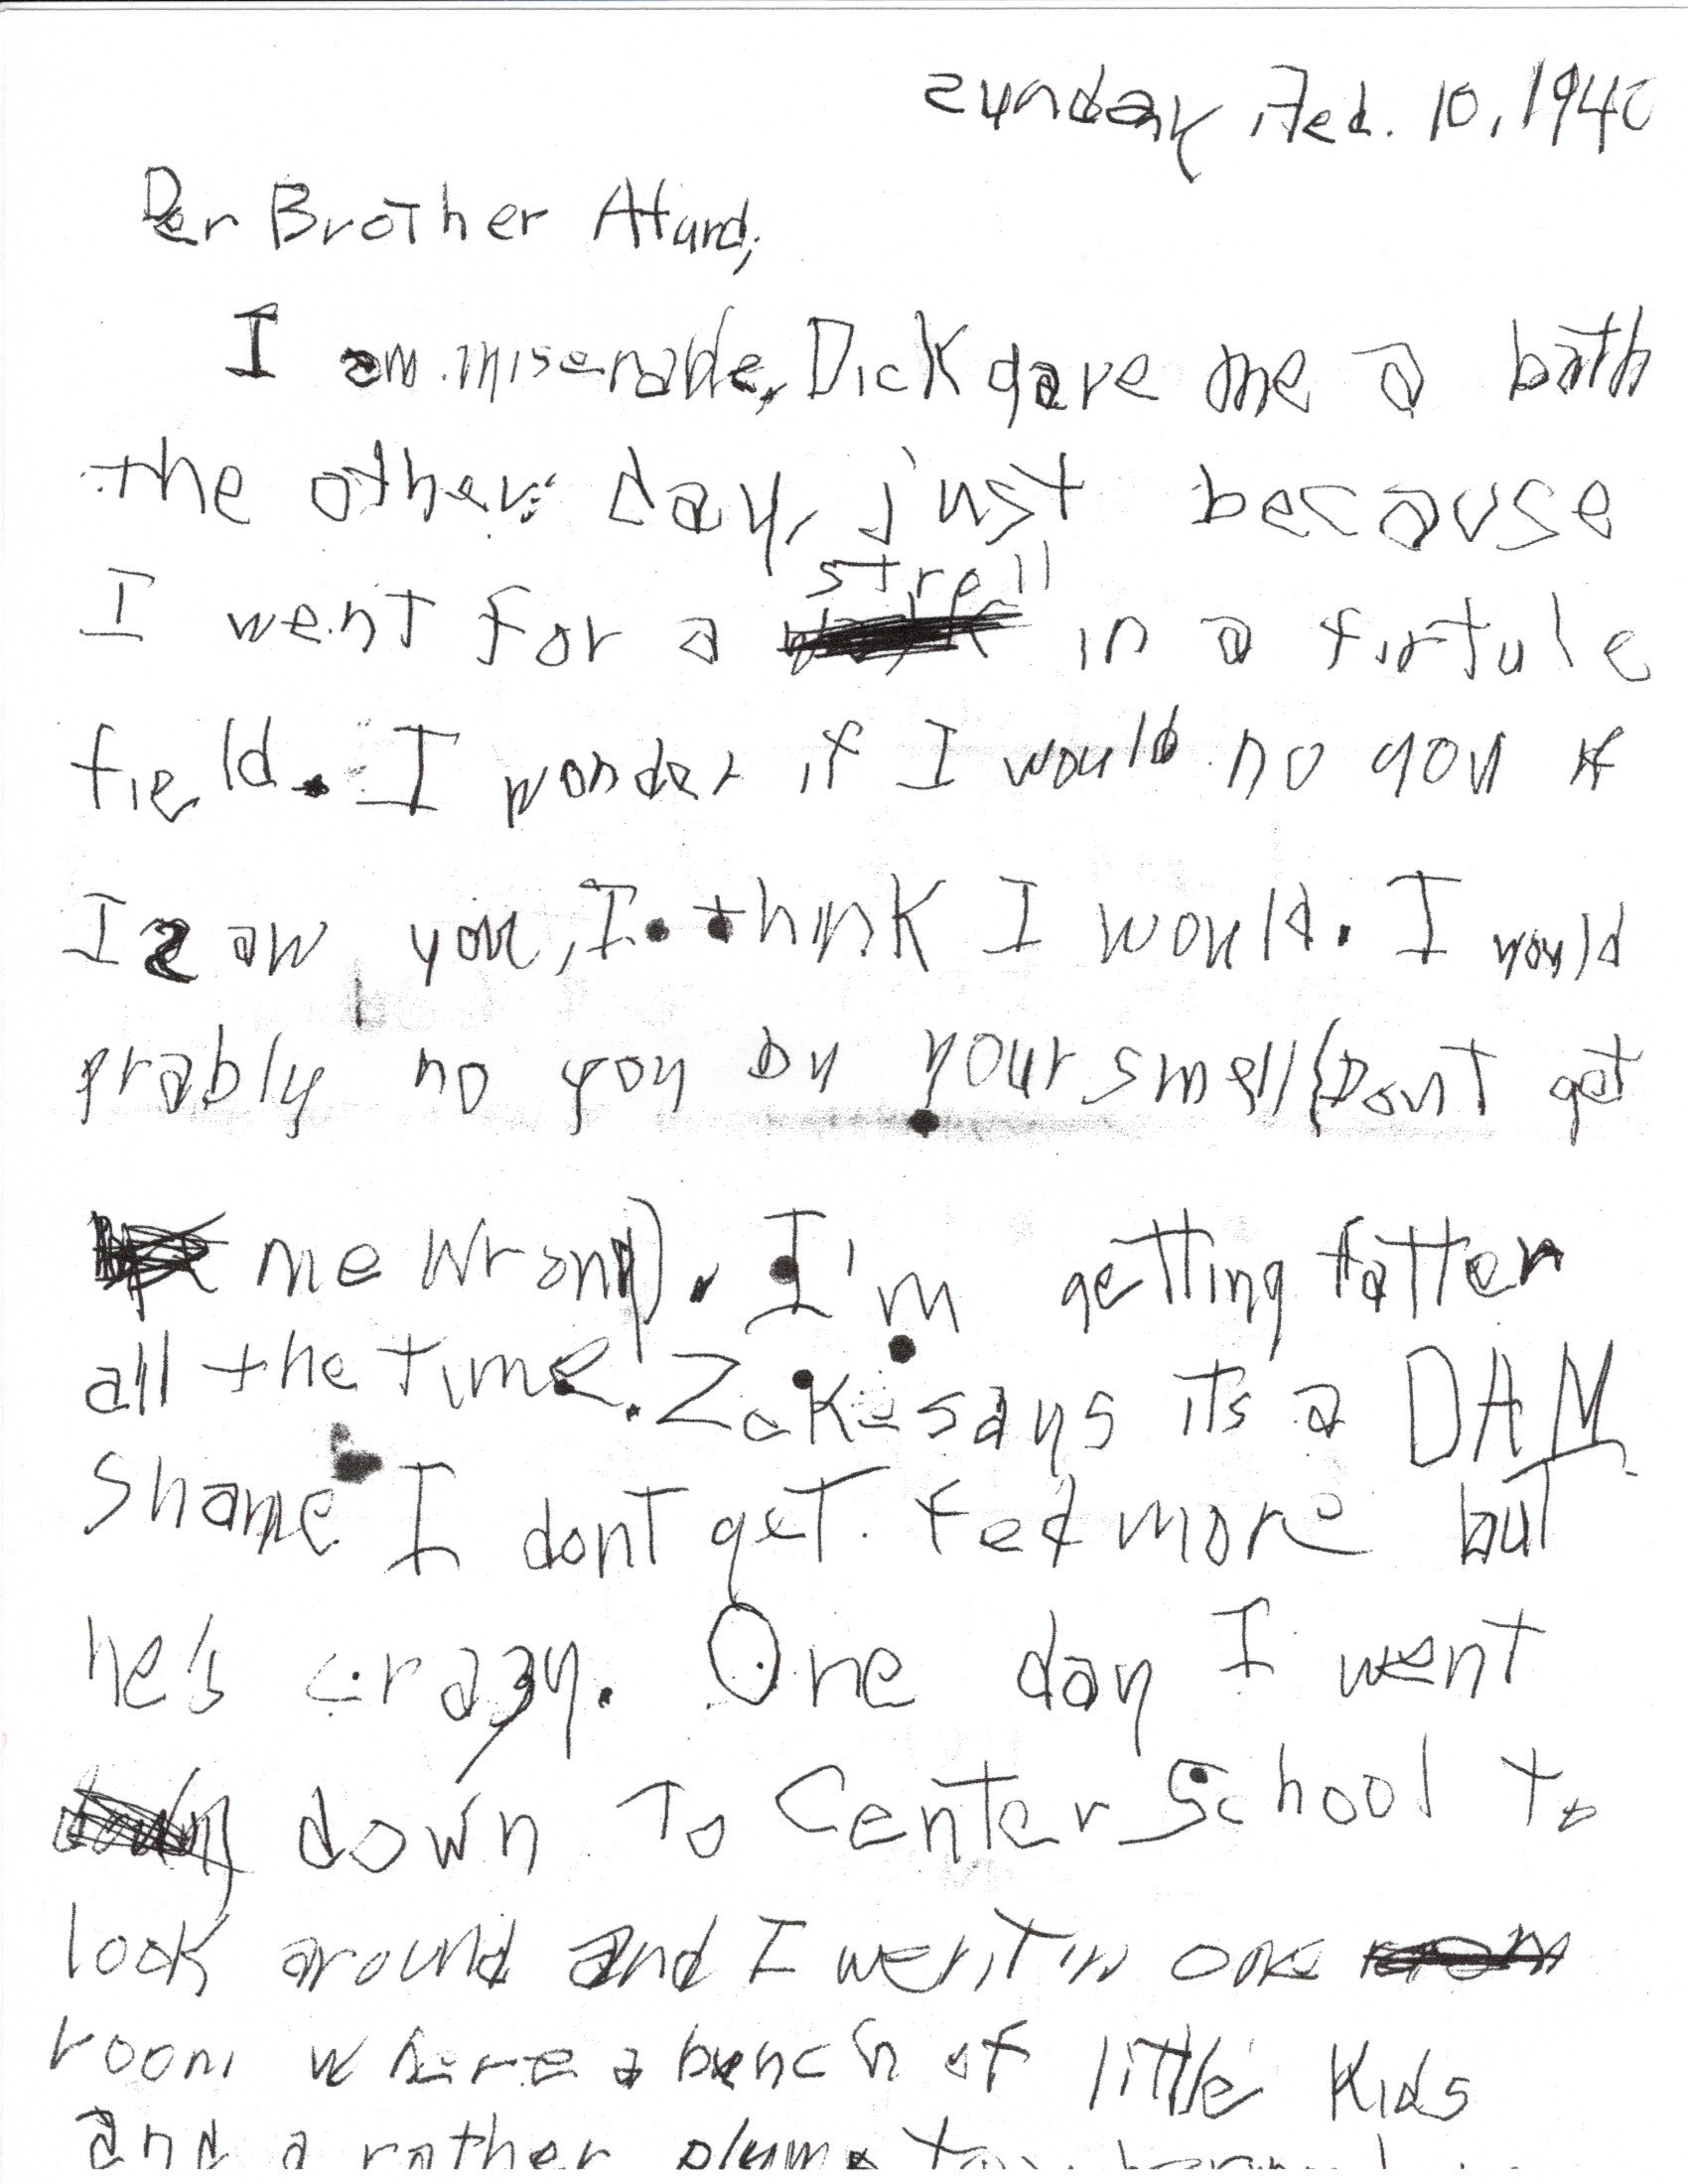 zunday, Feb. 10, 194
Der Brother Afurd,
I am miserable, Dick gave me a bath
the other day, just because
I went for a stroll in a firtule
field. I wonder if I would no you if
I zaw you, I think I would. I would
prably no you by your smell (Dont get
me wrong). I'm getting fatter
all the time. Zeke says its a DAM
shame I dont get fed more but
he's crazy. One day I went
down to Center School to
look around and I went in one
room where a bunch of little kids
and a rather plump